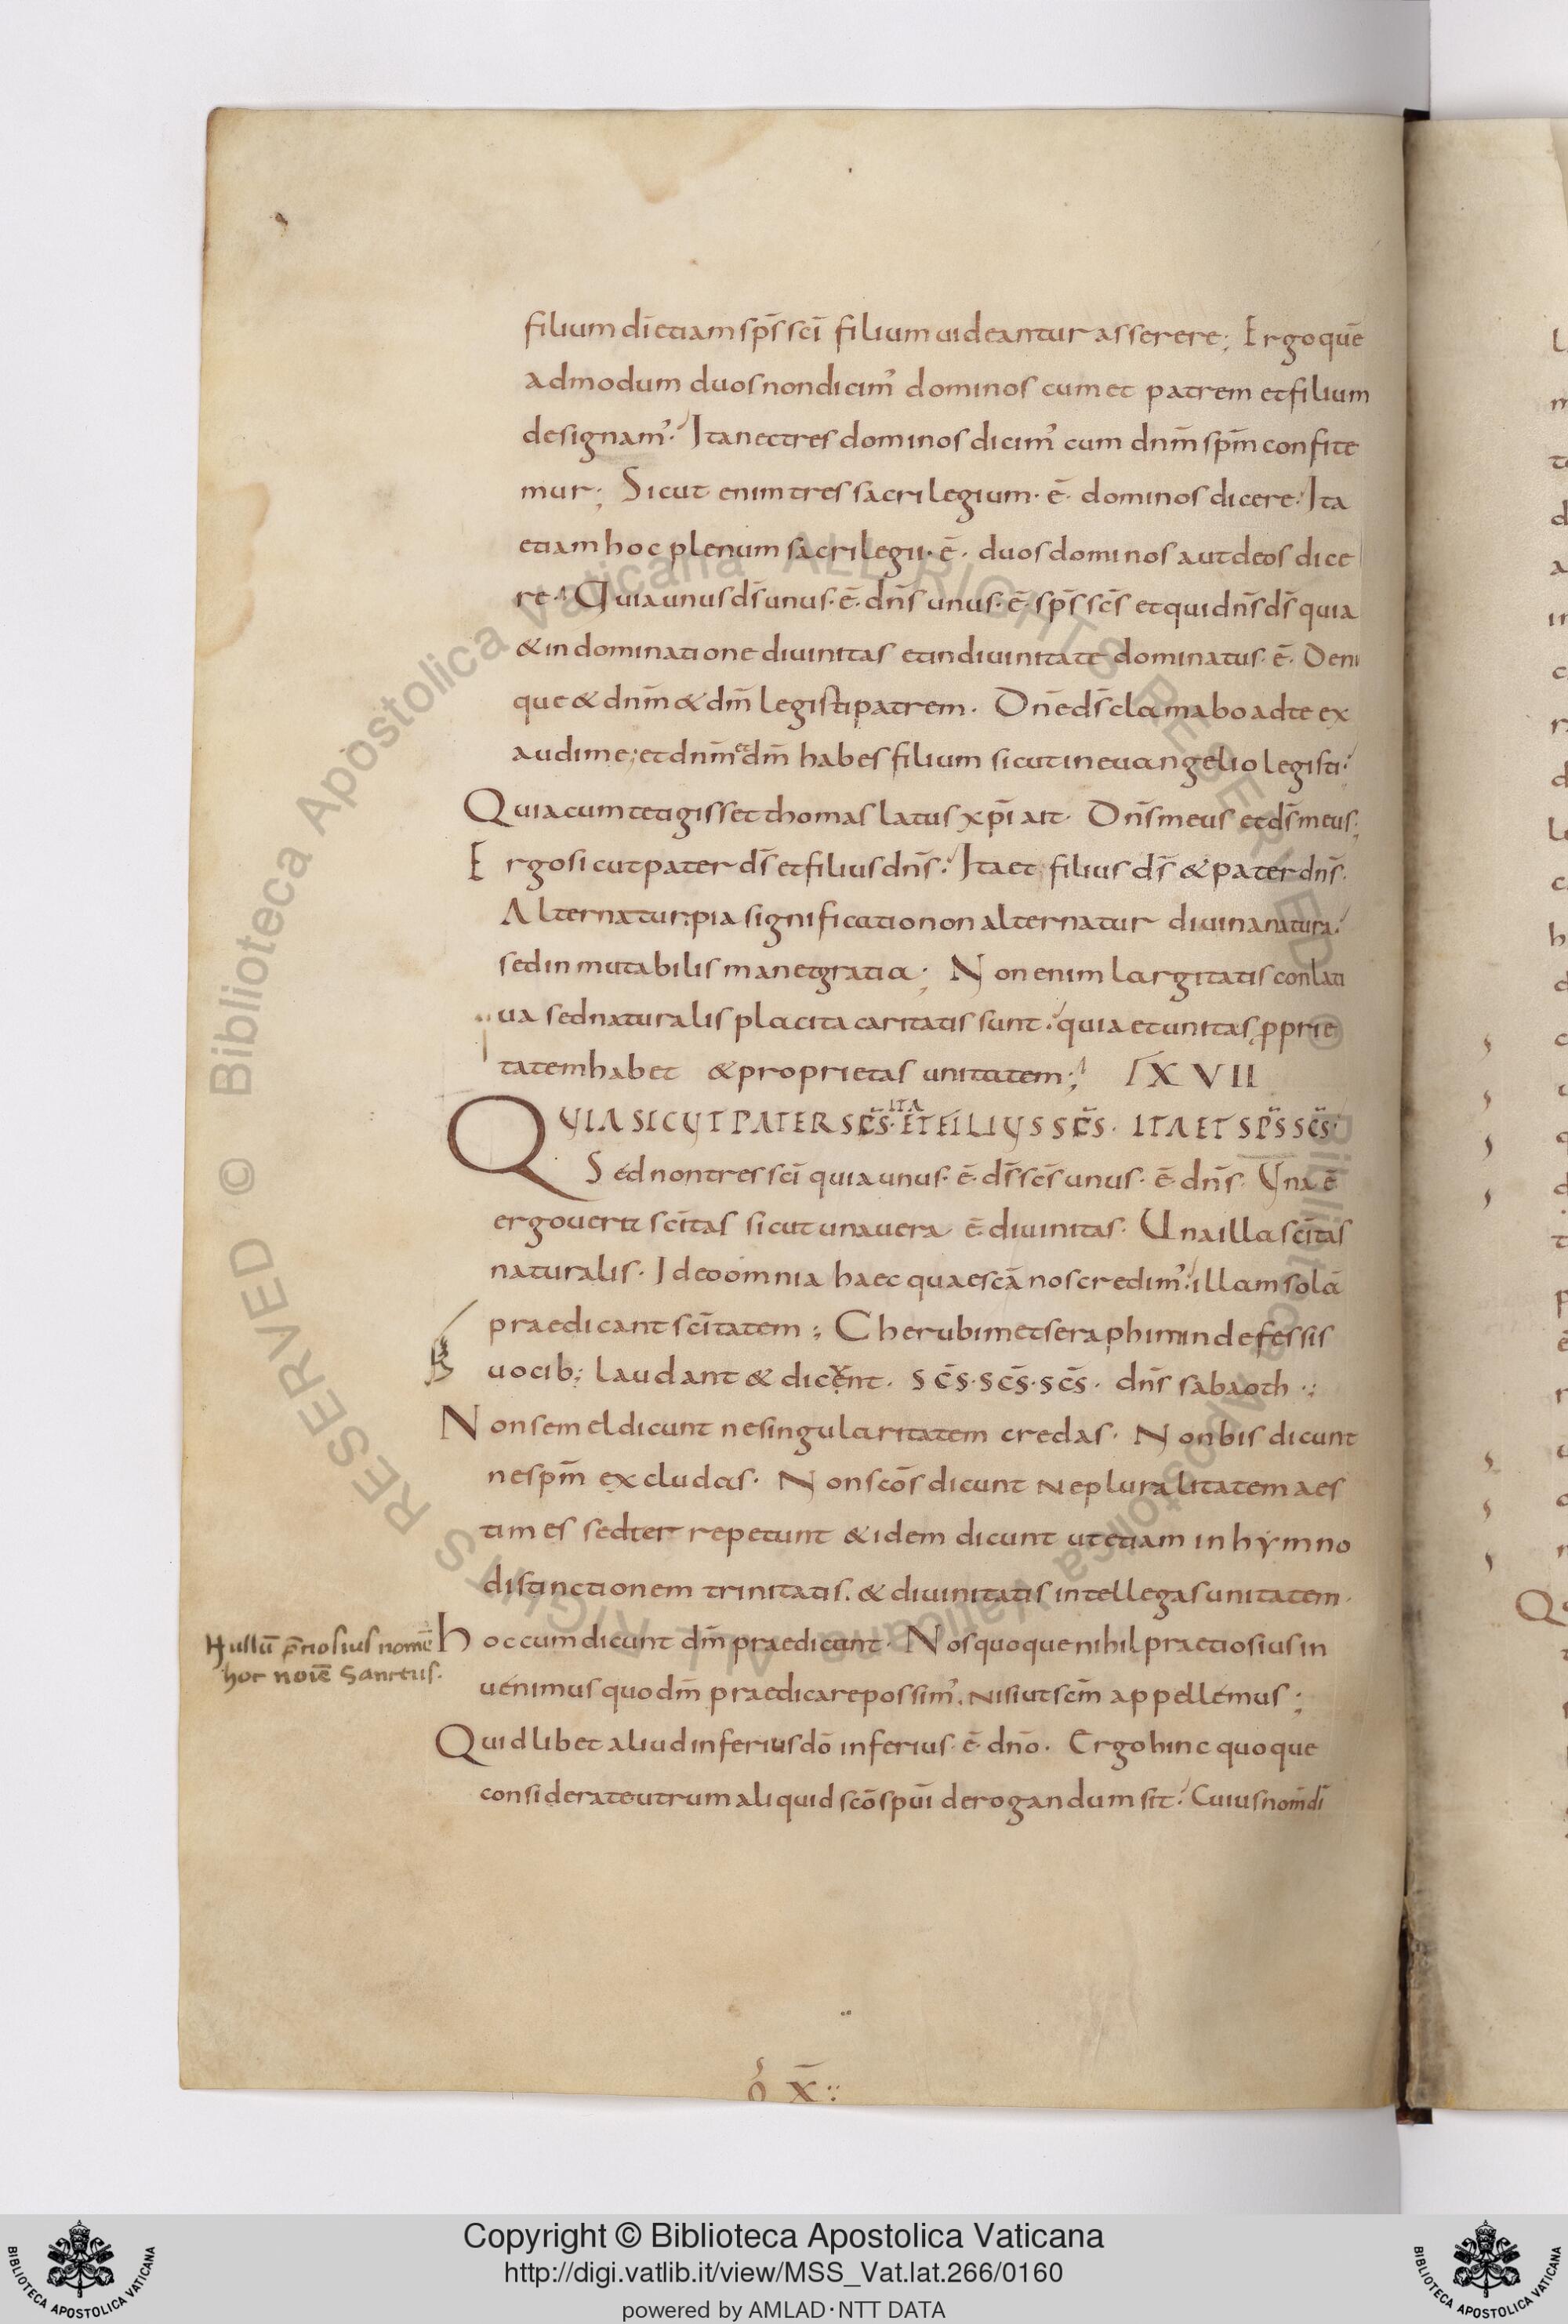 filium dī etiam sp̄s sc̄i filium uideantur asserere; Ergo quē
admodum duos non dicim' dominos cum et patrem et filium
designam'. Ita nec tres dominos dicim' cum dn̄m sp̄m confite
mur; Sicut enim tres sacrilegium · ē · dominos dicere. Ita
etiam hoc plenum sacrilegii · ē · duos dominos aut deos dice
re. Quia unus ds̄ unus · ē · dn̄s unus · ē · sp̄s sc̄s et qui dn̄s ds̄ quia
& in dominatione diuinitas et in diuinitate dominatus · ē · Deni
que & dn̄m & dm̄ legisti patrem. Dn̄e ds̄ clamabo ad te ex
audi me; et dn̄m et dm̄ habes filium sicut in euangelio legisti.
Quia cum tetigisset thomas latus xp̄i ait. Dn̄s meus et ds̄ meus;
Ergo sicut pater ds̄ et filius dn̄s. Ita et filius ds̄ & pater dn̄s.
Alternatur pia significatio non alternatur diuina natura.
sed inmutabilis manet gratia; Non enim largitatis conlati
ua sed naturalis placita caritatis sunt. quia et unitas pprie
tatem habet & proprietas unitatem; LXVII
QUIA SICUT PATER SC̄S · ITA ET FILIUS SC̄S · ITA ET SP̄S SC̄S ·
Sed non tres sc̄i quia unus · ē · ds̄ sc̄s unus · ē · dn̄s. Una ē
ergo uera sc̄itas sicut una uera ē · diuinitas. Una illa sc̄itas
naturalis. Ideo omnia haec quae scā nos credim'. illam solā
praedicant sc̄itatem; Cherubim et seraphim indefessis
uocib; laudant & dicent. SC̄S · SC̄S · SC̄S · dn̄s sabaoth;
Non semel dicunt ne singularitatem credas. Non bis dicunt
ne sp̄m excludas. Non scōs dicunt ne pluralitatem aes
times sed ter repetunt & idem dicunt ut etiam in hẏmno
distinctionem trinitatis. & diuinitatis intellegas unitatem.
Nullū p̄tiosius nomē
hoc noīe Sanctus.
hoc cum dicunt dm̄ praedicant. Nos quoque nihil praetiosius in
uenimus quo dm̄ praedicare possim'. nisi ut sc̄m appellemus;
Quidlibet aliud inferius dō inferius · ē · dn̄o. Ergo hinc quoque
considerate utrum aliquid scō spūi derogandum sit. Cuius nom̄ dī
X
Copyright © Biblioteca Apostolica Vaticana
http://digi.vatlib.it/view/MSS_Vat.lat.266/0160
powered by AMLAD·NTT DATA
BIBLIOTECA APOSTOLICA VATICANA
BIBLIOTECA APOSTOLICA VATICANA